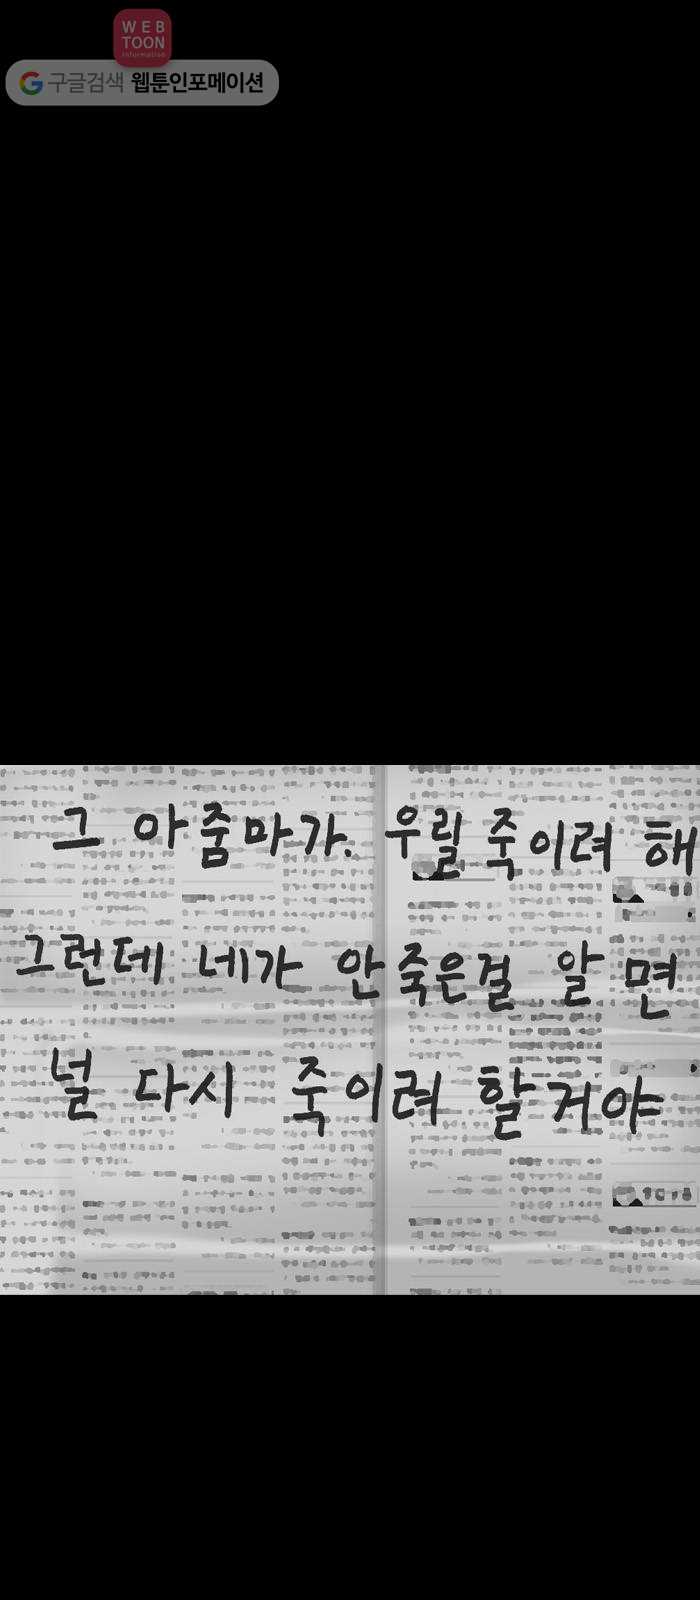 WEB
TOON
Information
구글검색 웹툰인포메이션
그 아줌마가. 우릴 죽이려 해
그런데 네가 안죽은걸 알 면
널 다시 죽이려 할거야